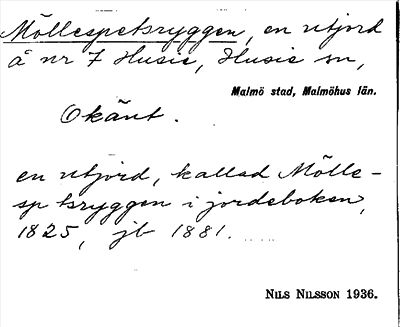 Möllespetsryggen, en utjord
å nr 7 Husie, Husie sn,
Malmö stad, Malmöhus län.
Okänt.
en utjord, kallad Mölle-
sp tsryggen i jordeboken,
1825, jb 1881.
NILS NILSSON 1936.